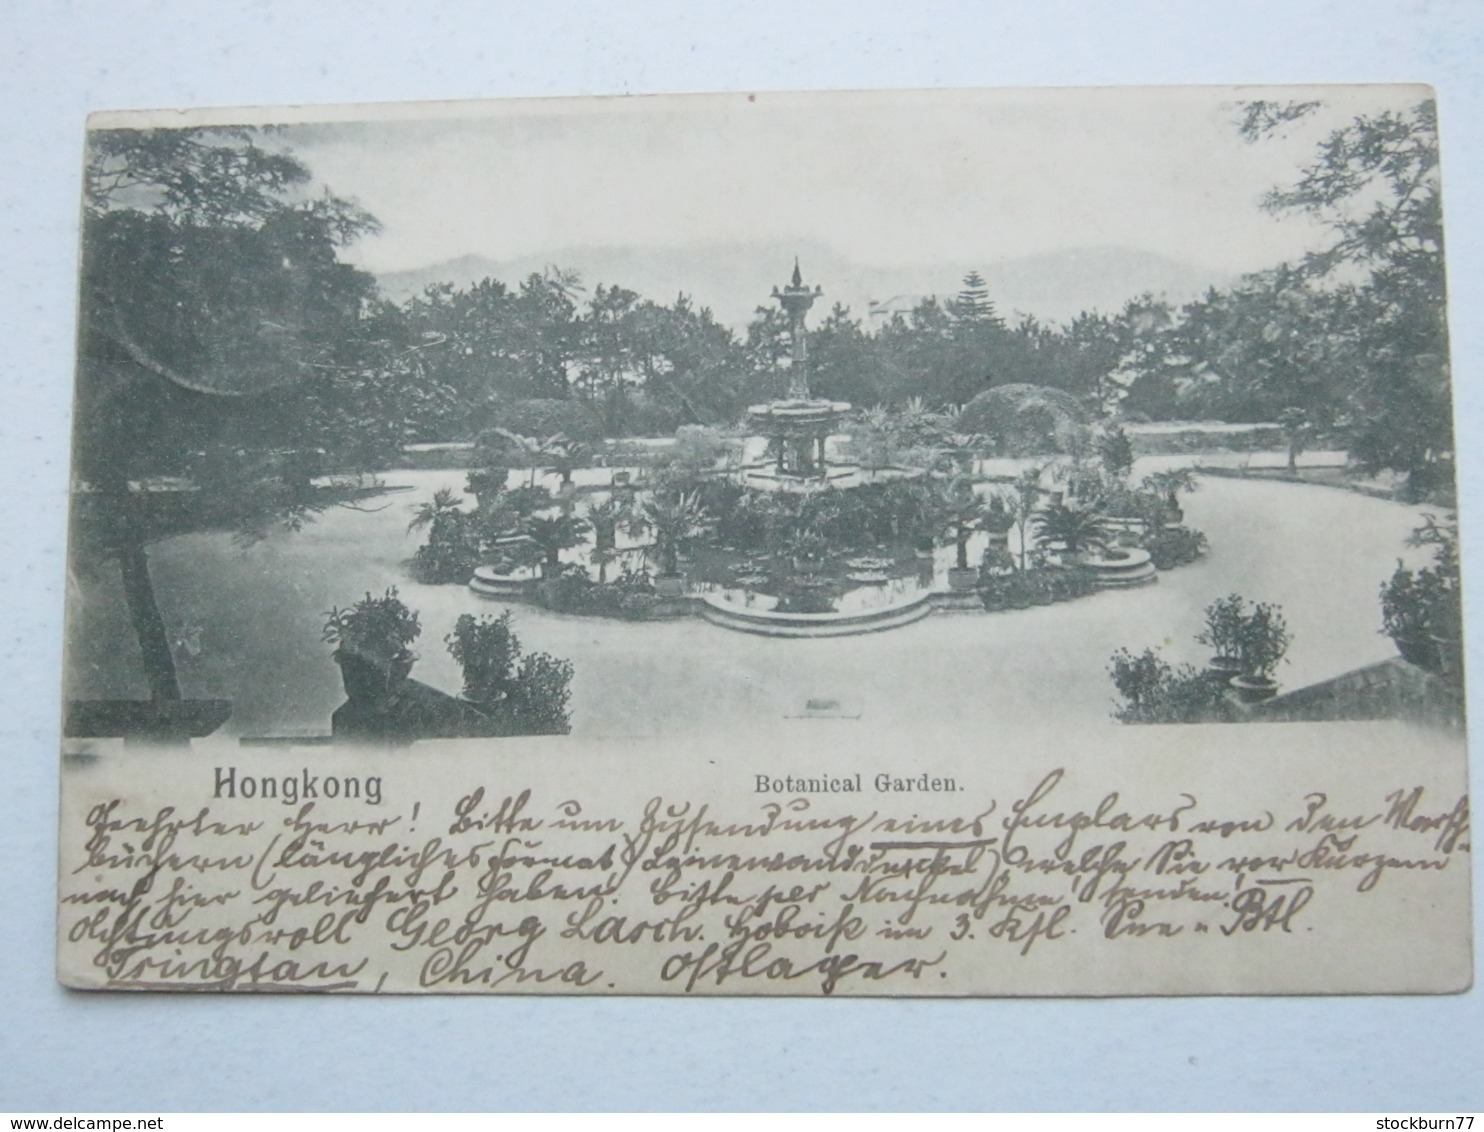 Hongkong
Botanical Garden.
Geehrter Herr! Bitte um Zusendung eines Exemplars von den Marsch-
büchern (längliches Format, Leinewanddeckel), welche Sie vor Kurzem
nach hier geliefert haben. Bitte per Nachnahme senden!
Achtungsvoll Georg Lasch. Hoboist im 3. Kfl. See - Btl.
Tsingtau, China. Ostlager.
delcampe.net
stockburn77